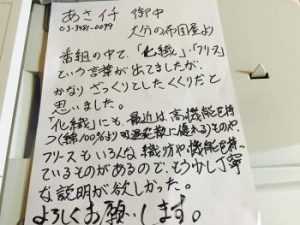 あさイチ 御中
03-3481-0099
大分の布団屋より
番組の中で、「化繊」、「フリース」
という言葉が出てましたが、
かなりざっくりとしたくくりだと
思いました。
「化繊」にも、最近は、高機能を持
つ(綿100%より吸湿発散に優れる)ものや、
フリースもいろんな織り方や機能を持っ
ているものがあるので、もう少し丁寧
な説明が欲しかった。
よろしくお願いします。